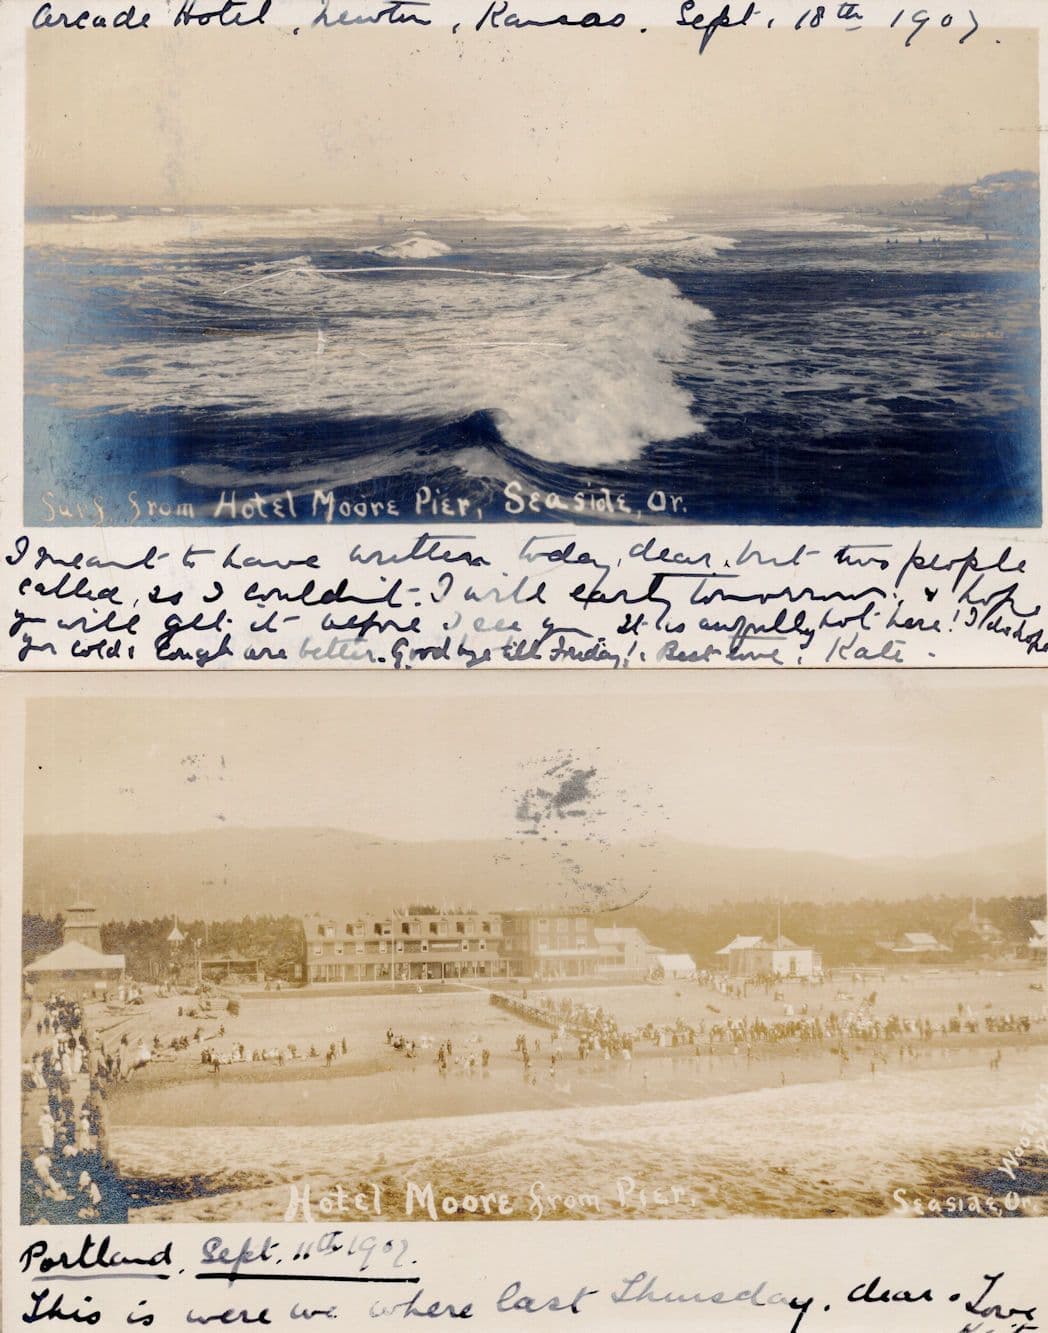 Arcade Hotel, Newton, Kansas. Sept. 18th 1907.
Surf from Hotel Moore Pier, Seaside, Or.
I meant to have written today, dear, but two people
called, so I couldn't. I will early tomorrow, & hope
you will get it before I see you. It is awfully hot here! I do hope
your cold & cough are better. Goodbye till Friday! Best love, Kate.
Hotel Moore from Pier.
Seaside, Or.
Portland, Sept. 11th 1907.
This is were we where last Thursday, dear. Love